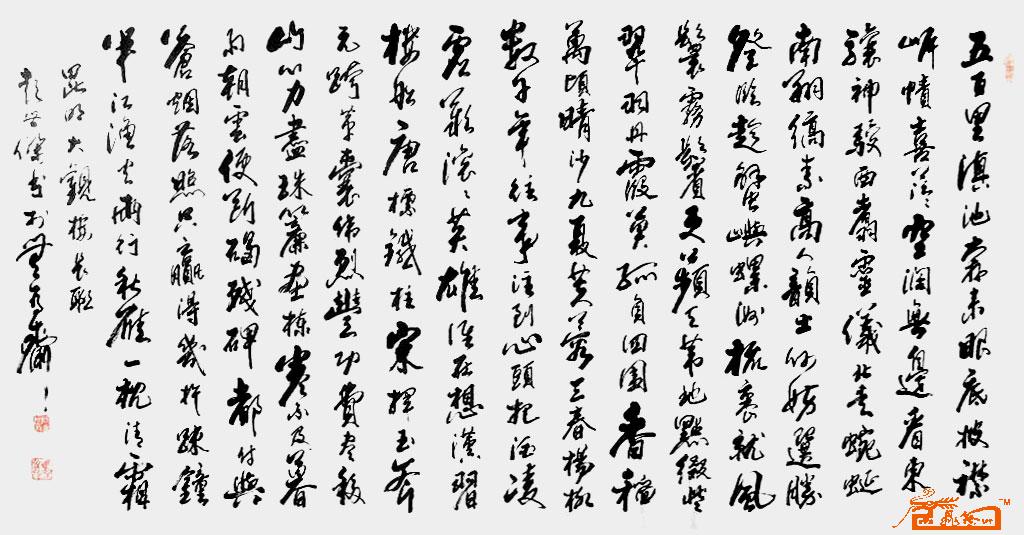 五百里滇池奔来眼底披襟
岸幘喜茫〻空闊無邊看東
驤神骏西翥靈儀北走蜿蜒
南翔縞素高人韻士何妨選勝
登臨趁蟹嶼螺洲梳裹就風
鬟霧鬓更蘋天葦地點綴些
翠羽丹霞莫孤負四圍香稻
萬頃晴沙九夏芙蓉三春楊柳
數千年往事注到心頭把酒凌
虚歎滚〻英雄谁在想漢習
樓船唐標鐵柱宋揮玉斧
元跨革囊伟烈豐功費尽移
山心力盡珠簾畫棟卷不及暮
雨朝雲便断碣残碑都付與
蒼烟落照只贏得幾杵疎鐘
半江漁火兩行秋雁一枕清霜
昆明大觀樓長聯